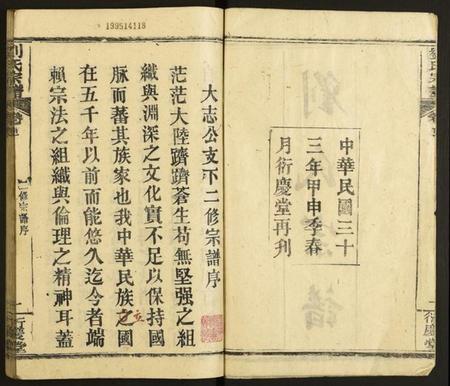 199514118
劉氏宗譜
中華民國三十
三年甲申季春
月衍慶堂再刊
衍慶堂
大志公支下二修宗譜序
茫茫大陸躋躋蒼生苟無堅强之組
織與淵深之文化實不足以保持國
脉而蕃其族家也我中華民族立國
在五千年以前而能悠久迄今者端
賴宗法之組織與倫理之精神耳蓋
劉氏宗譜
二修宗譜序
衍慶堂